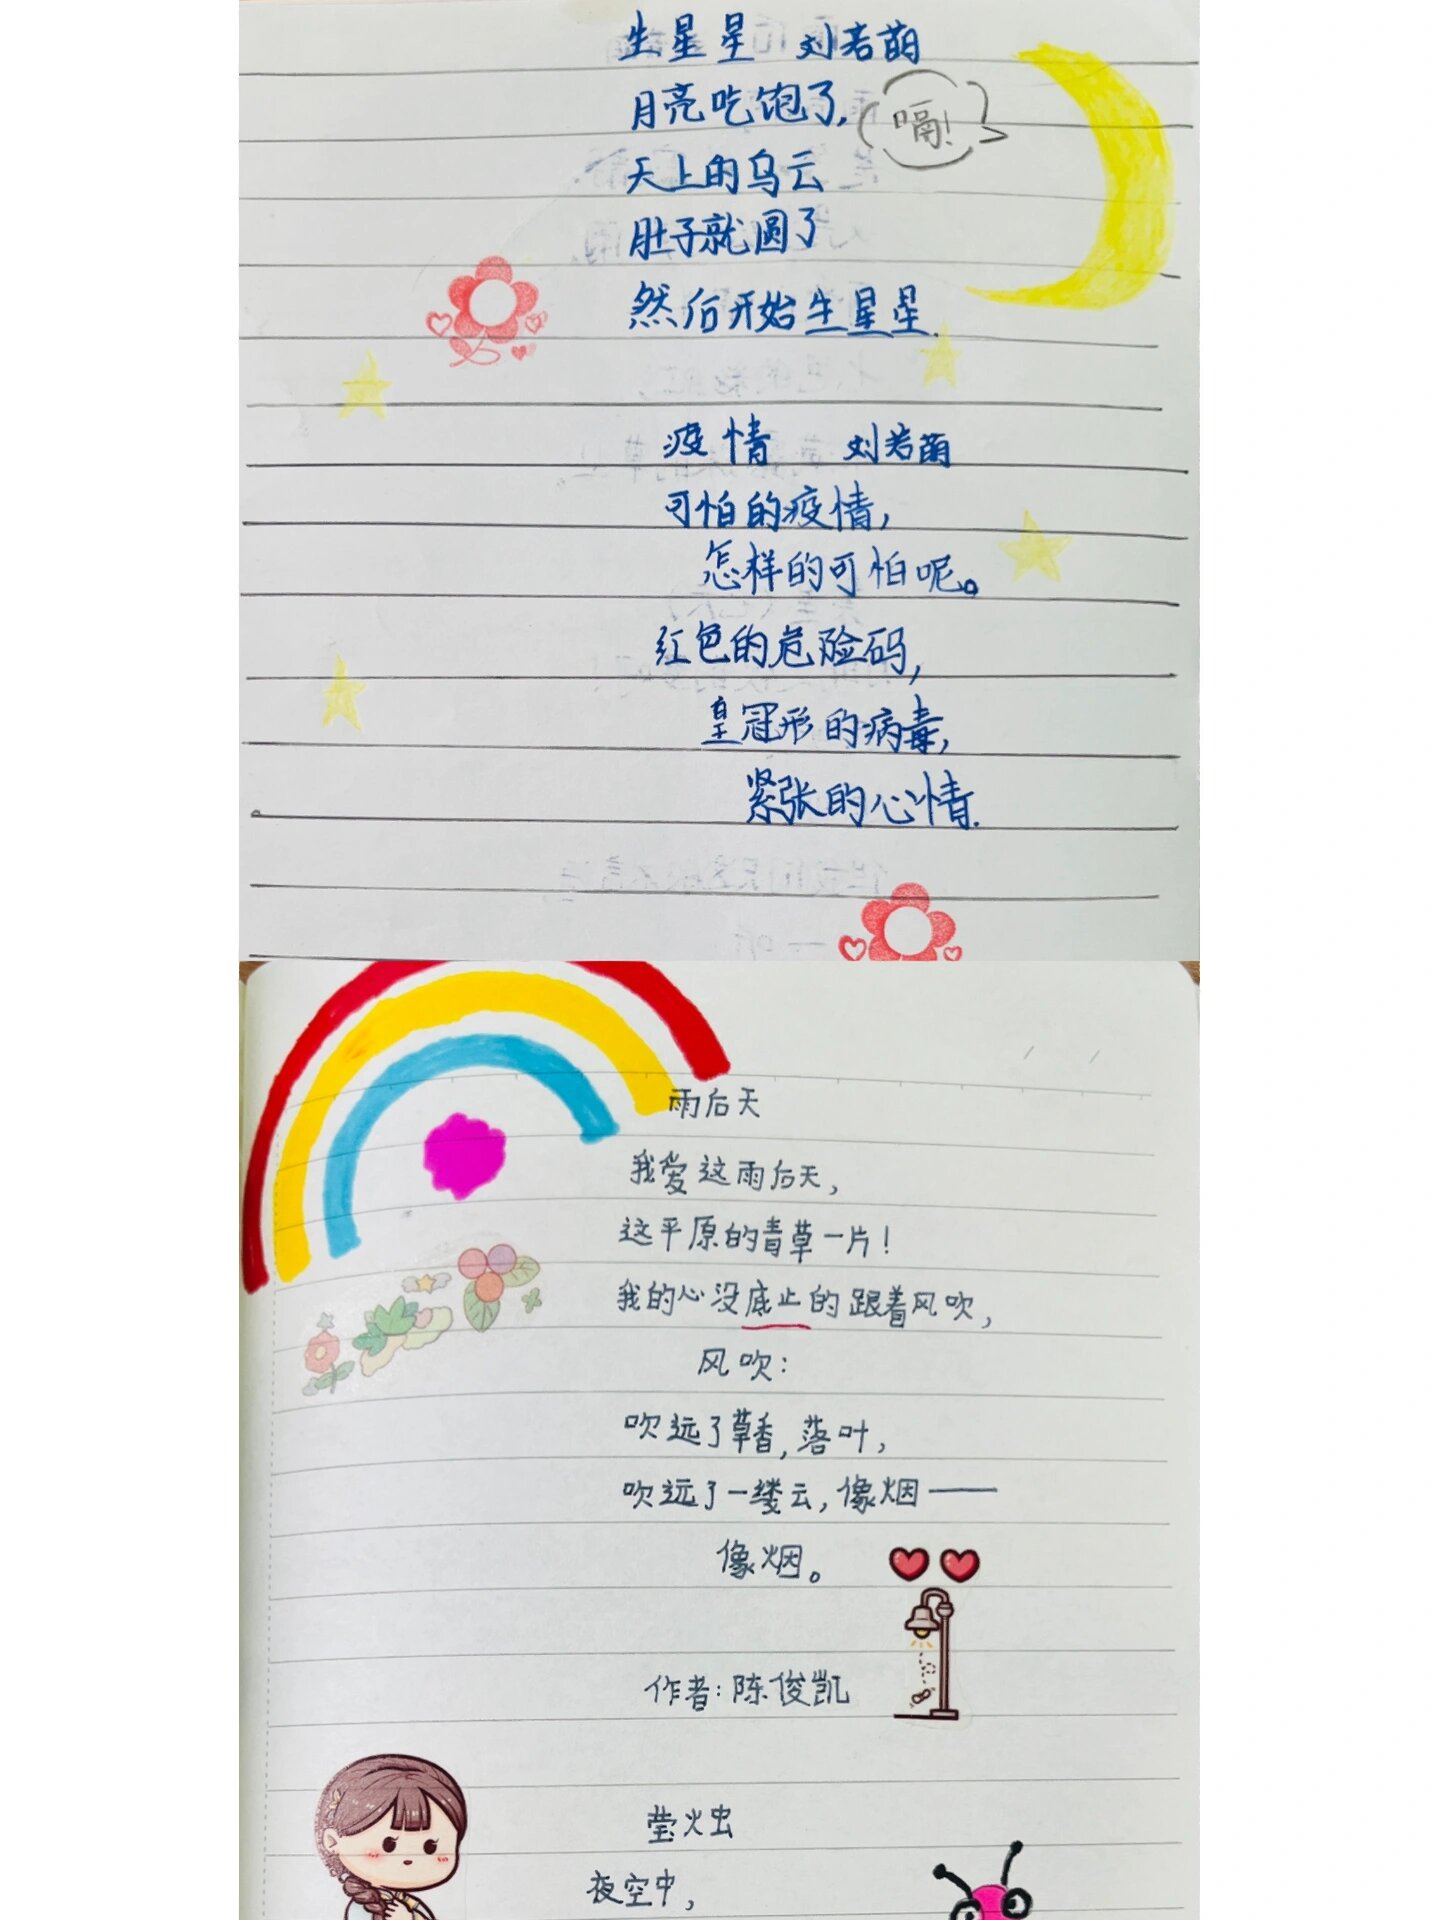 生星星 刘若萌
月亮吃饱了,
嗝!
天上的乌云
肚子就圆了
然后开始生星星.
疫情 刘若萌
可怕的疫情,
怎样的可怕呢。
红色的危险码,
皇冠形的病毒,
紧张的心情.
雨后天
我爱这雨后天,
这平原的青草一片!
我的心没底止的跟着风吹,
风吹:
吹远了草香,落叶,
吹远了一缕云,像烟——
像烟。
作者:陈俊凯
萤火虫
夜空中,